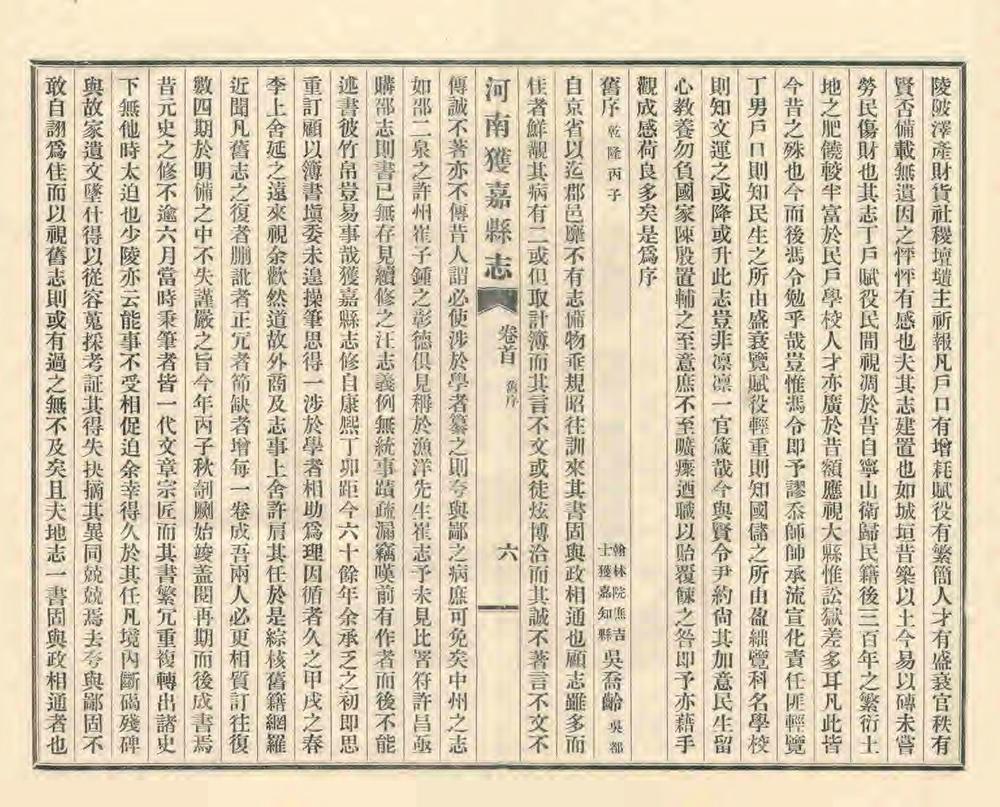 陵陂澤產財貨社稷壇壝主祈報凡戶口有增耗賦役有繁簡人才有盛衰官秩有
賢否備載無遺因之怦怦有感也夫其志建置也如城垣昔築以土今易以磚未嘗
勞民傷財也其志丁戶賦役民間視凋於昔自寧山衛歸民籍後三百年之繁衍土
地之肥磽較牟富於民戶學校人才亦廣於昔額應視大縣惟訟獄差多耳凡此皆
今昔之殊也今而後馮令勉乎哉豈惟馮令即予謬忝師師承流宣化責任匪輕覽
丁男戶口則知民生之所由盛衰覽賦役輕重則知國儲之所由盈絀覽科名學校
則知文運之或降或升此志豈非凛凛一官箴哉今與賢令尹約尙其加意民生留
心教養勿負國家陳殷置輔之至意庶不至曠瘝逎職以貽覆餗之咎即予亦藉手
觀成感荷良多矣是爲序
舊序 乾隆丙子 翰林院庶吉士獲嘉知縣 吳喬齡 吳都
自京省以迄郡邑靡不有志備物垂規昭往訓來其書固與政相通也顧志雖多而
佳者鮮覯其病有二或但取計簿而其言不文或徒炫博洽而其誠不著言不文不
河南獲嘉縣志 卷首 舊序 六
傳誠不著亦不傳昔人謂必使涉於學者纂之則夸與鄙之病庶可免矣中州之志
如邵二泉之許州崔子鍾之彰德俱見稱於漁洋先生崔志予未見比署符許昌亟
購邵志則書已無存見續修之汪志義例無統事蹟疏漏竊嘆前有作者而後不能
述書彼竹帛豈易事哉獲嘉縣志修自康熙丁卯距今六十餘年余承乏之初即思
重訂顧以簿書塡委未遑操筆思得一涉於學者相助爲理因循者久之甲戌之春
李上舍延之遠來視余歡然道故外商及志事上舍許肩其任於是綜核舊籍網羅
近聞凡舊志之復者刪訛者正冗者節缺者增每一卷成吾兩人必更相質訂往復
數四期於明備之中不失謹嚴之旨今年丙子秋剞劂始竣蓋閱再期而後成書焉
昔元史之修不逾六月當時秉筆者皆一代文章宗匠而其書繁冗重複轉出諸史
下無他時太迫也少陵亦云能事不受相促迫余幸得久於其任凡境內斷碣殘碑
與故家遺文墜什得以從容蒐採考証其得失抉摘其異同兢兢焉去夸與鄙固不
敢自詡爲佳而以視舊志則或有過之無不及矣且夫地志一書固與政相通者也